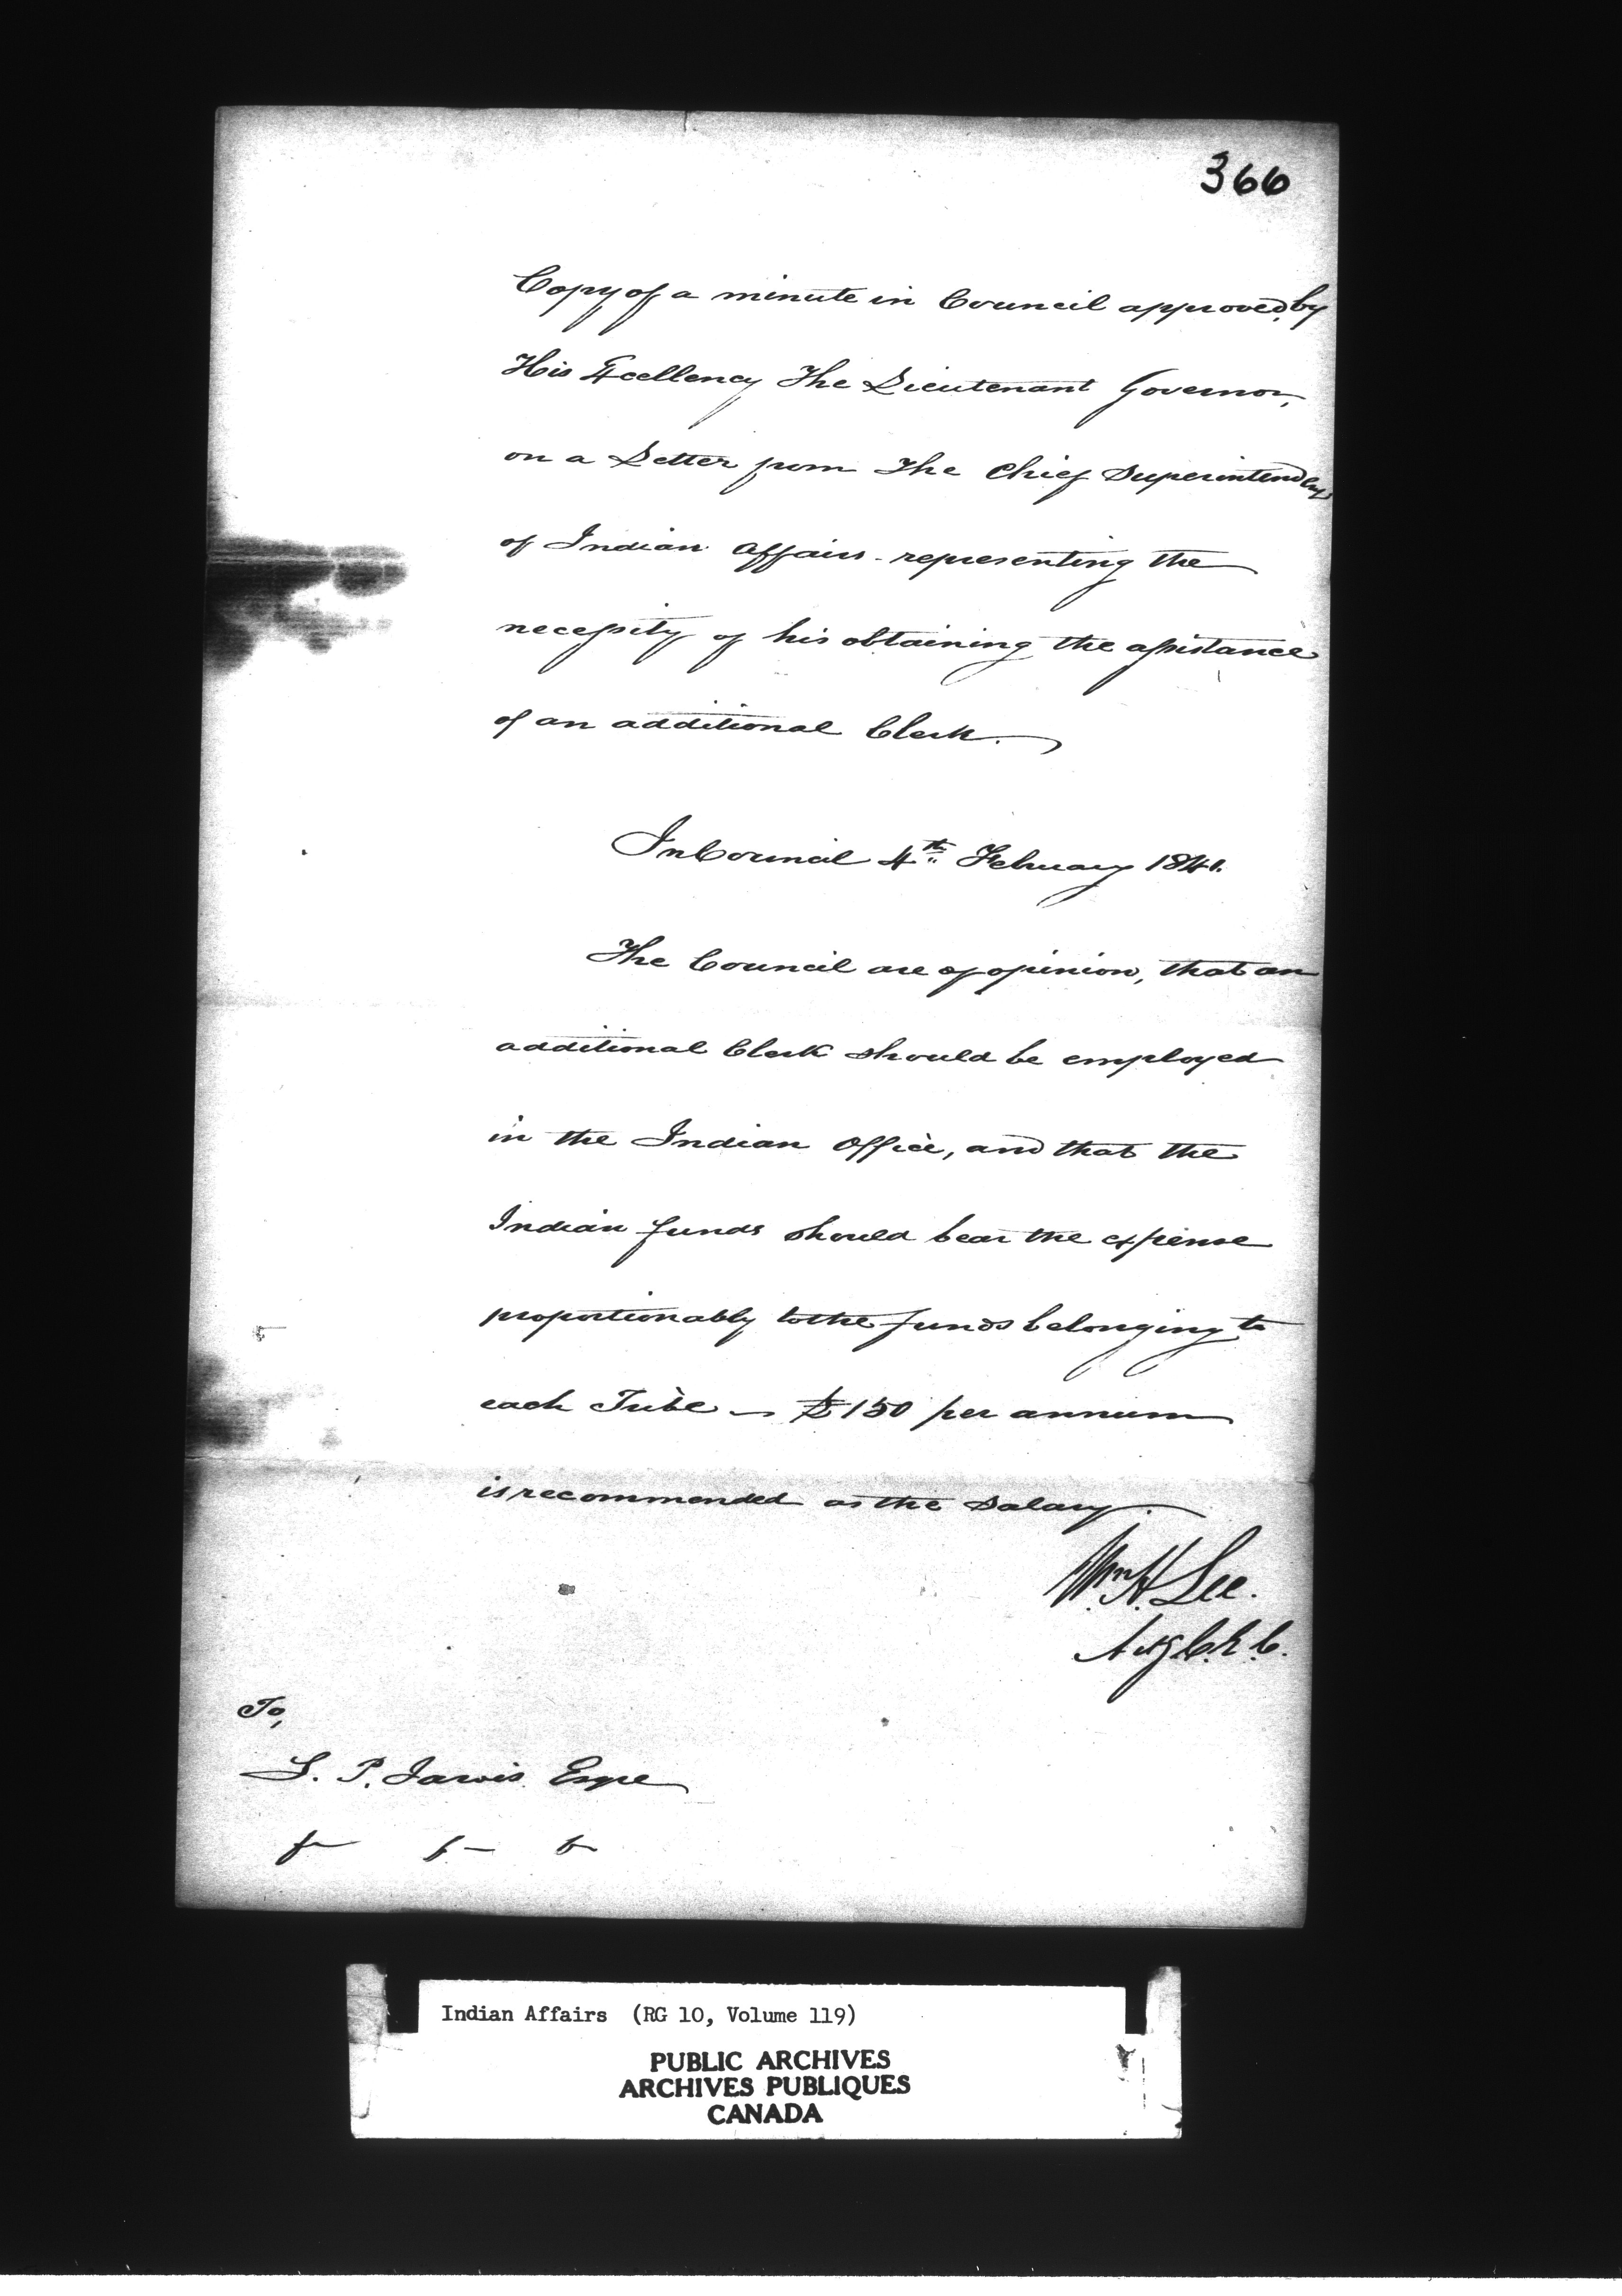 366
Copy of a minute in Council approved by
His Excellency The Lieutenant Governor,
on a Letter from The Chief Superintendent
of Indian Affairs - representing the
necessity of his obtaining the assistance
of an additional Clerk.
In Council 4th February 1841.
The Council are of opinion, that an
additional Clerk should be employed
in the Indian Office, and that the
Indian funds should bear the expense
proportionably to the funds belonging to
each Tribe — £150 per annum
is recommended as the Salary.
Wm. H. Lee.
Actg C. E. C.
To,
S. P. Jarvis Esqre
Indian Affairs (RG 10, Volume 119)
PUBLIC ARCHIVES
ARCHIVES PUBLIQUES
CANADA